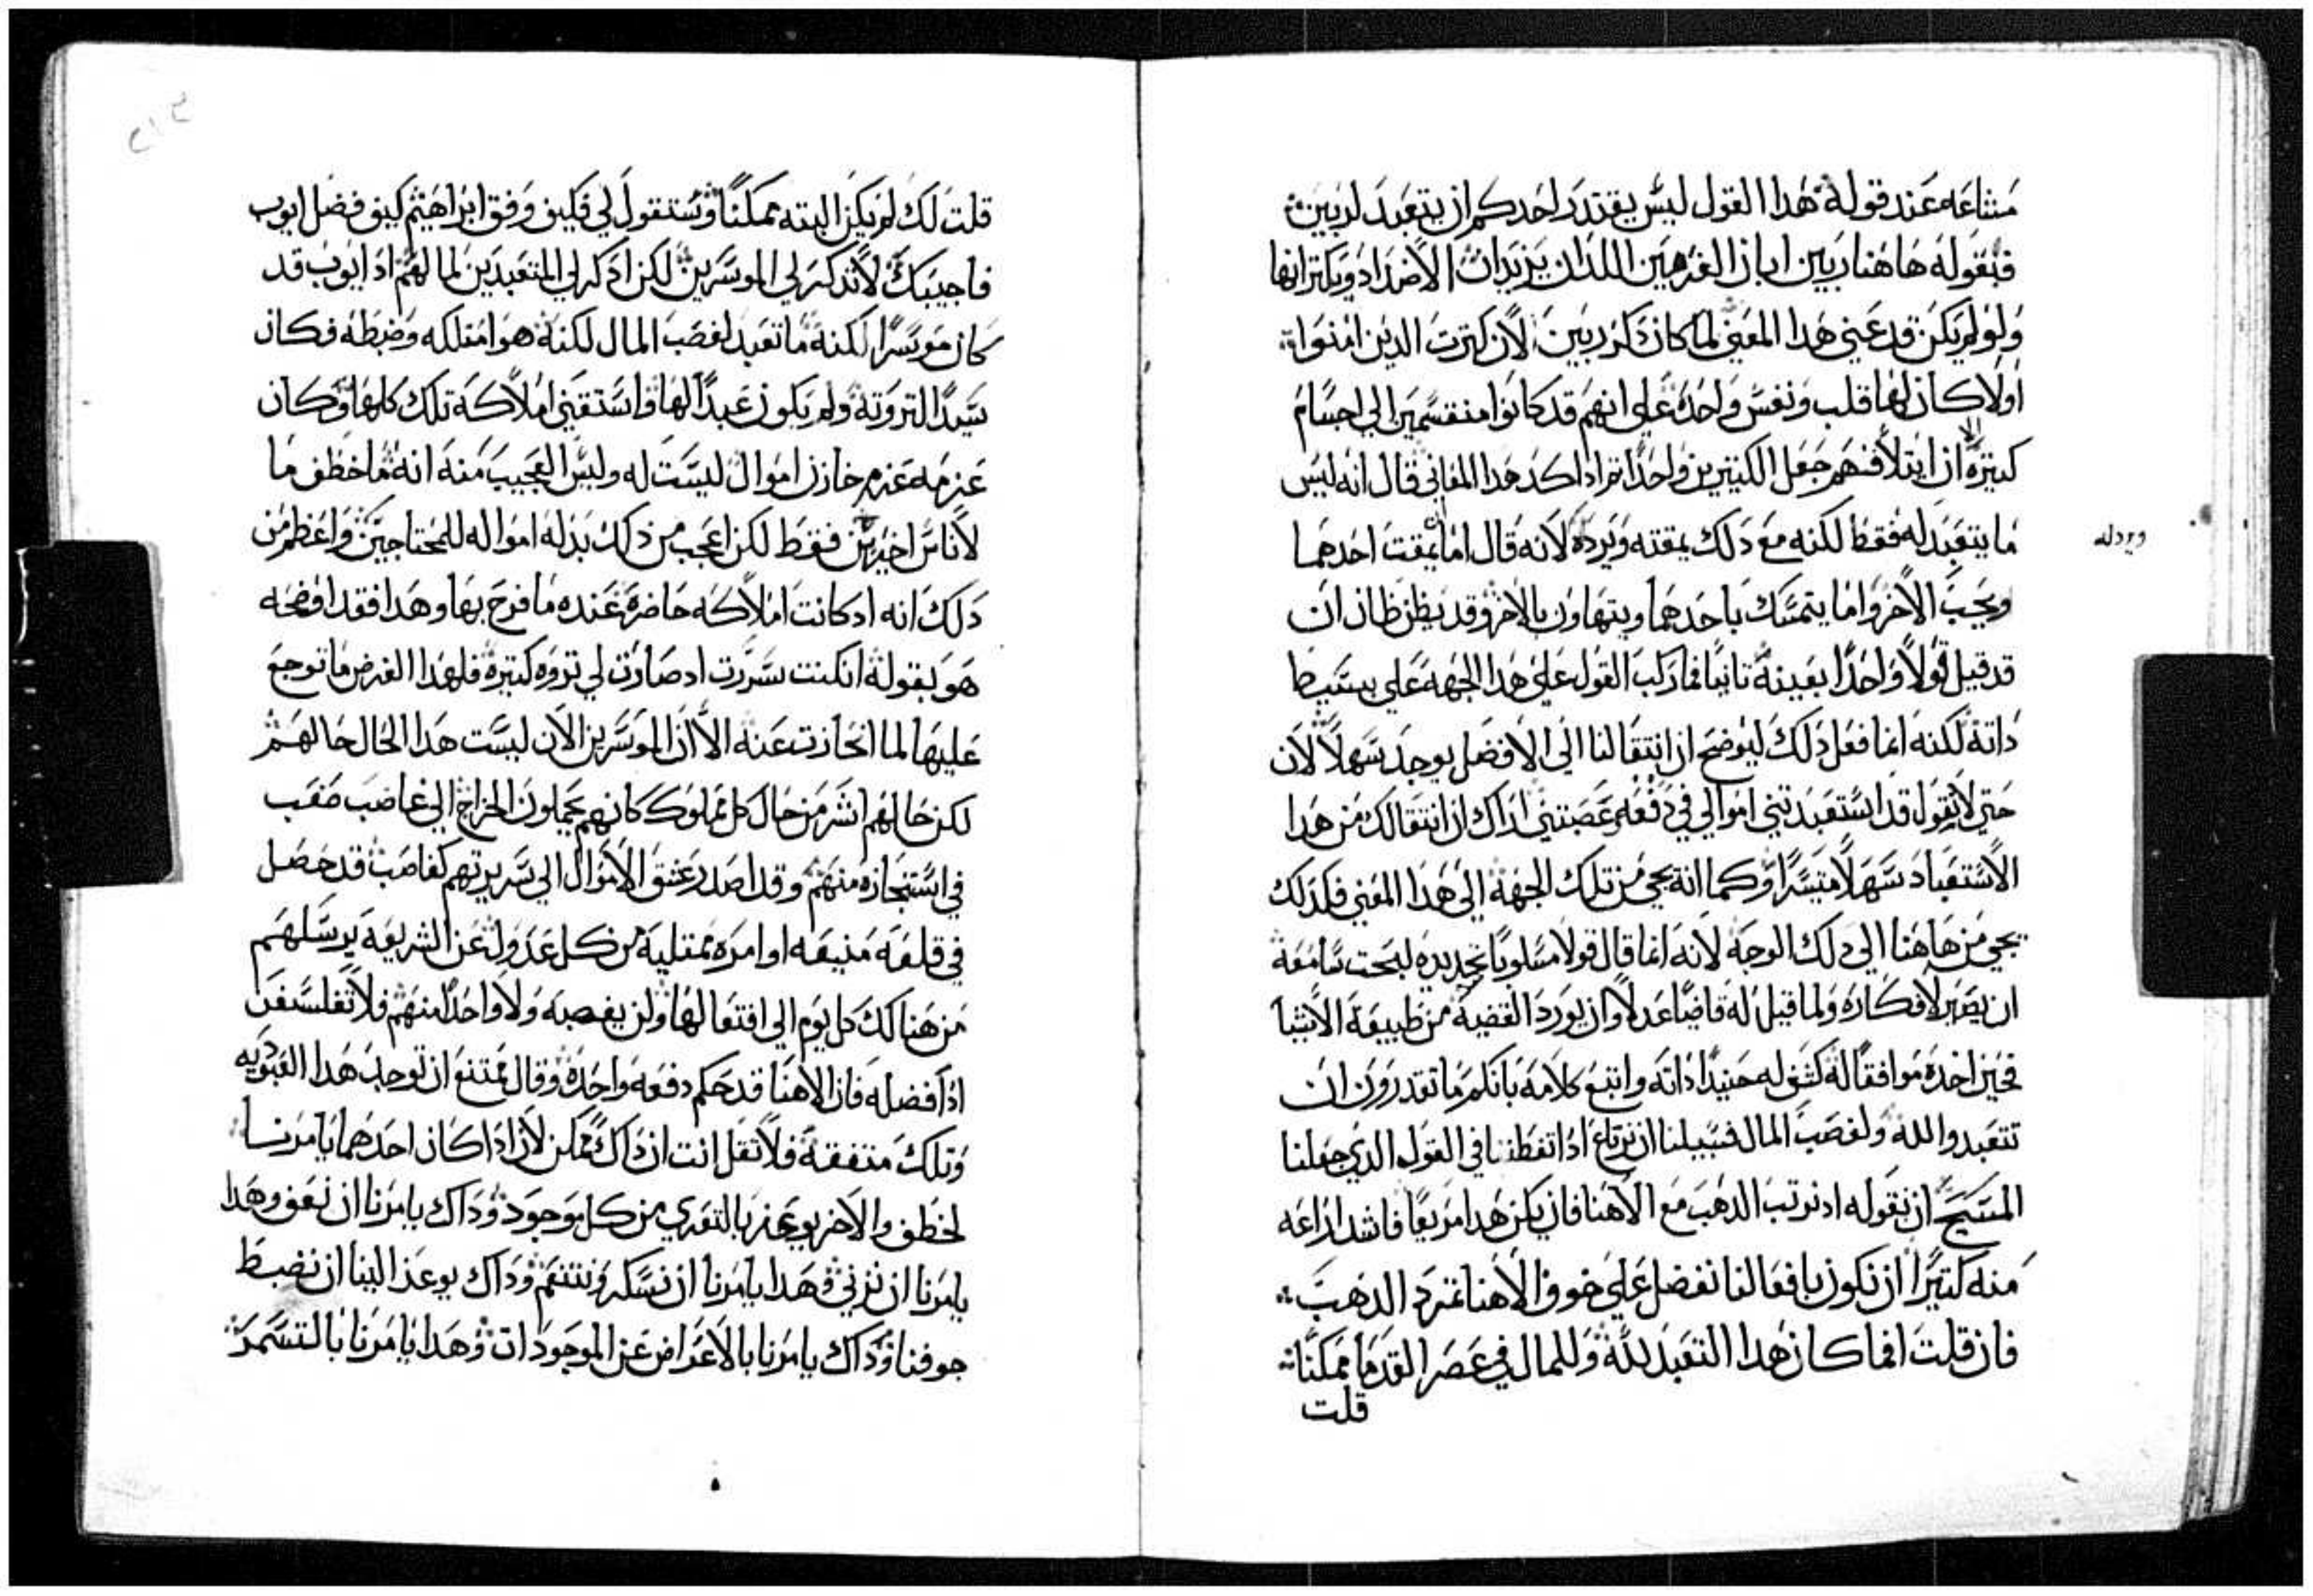 مسامعه عند قوله هذا القول ليس يقتدر احدكم ان يتعبد لربين
فبقوله هاهنا ربين ابان الغرمين اللذان يريدان الاضداد ويكثرانها
ولو لم يكن قد عني هدا المعني لما كان ذكر ربين لان كترت الدين امنوا
اولا كان لها قلب ونفس واحده علي انهم قد كانوا منقسمين الي اجسام
كتيرة الا ان ايتلافهم جعل الكتيرين واحدا تم اد اكد هدا المعاني قال انه ليس
ما يتعبد له فقط لكنه مع دلك يمقته ويرده لانه قال اما يمقت احدهما
ويحب الاخر واما يتمسك باحدهما ويتهاون بالاخر وقد يظن ظان ان
قد قيل قولا واحدا بعينه تانيا فما ركب القول علي هدا الجهه علي بسيط
داته لكنه انما فعل دلك ليوضح ان انتقالنا الي الافضل يوجد سهلا لان
حتي لا تقول قد استعبدتني اموالي في دفعه غصبتني اراك ان انتقالك من هدا
الاستعباد سهلا متيسرا وكما انه يجي من تلك الجهة الي هدا المعني فكدلك
يجي من هاهنا الي دلك الوجه لانه انما قال قولا مسلوبا تحديده ليحت سامعه
ان يصير لافكاره ولما قيل له قاضيا عدلا وان يورد القضية من طبيعة الاشيا
فحين اخده موافقا له كشف له حنيدا داته واتبع كلامه بانكم ما تقدرون ان
تتعبدوا لله ولغصب المال فسبيلنا ان نرتاع ادا تفطنا في القول الدي جعلنا
المسيح ان نقوله اد نرتب الدهب مع الاهنا فان يكن هدا مريعا فاشد اراعه
منه كتيرا ان نكون بافعالنا نفضل علي خوف الاهنا تمرد الدهب
فان قلت افما كان هدا التعبد لله وللمال في عصر القدما ممكنا
قلت
ويردله
قلت لك لم يكن البته ممكنا وستقول لي فكيف وفق ابراهيم كيف فضل ايوب
فاجيبك لا تدكر لي الموسرين لكن ادكر لي المتعبدين لما لهم اد ايوب قد
كان موسرا لكنه ما تعبد لغصب المال لكنه هو امتلكه وضبطه فكان
سيدا لتروته ولم يكون عبدا لها واستقني املاكه تلك كلها وكان
عزمه عزم خازن اموال ليست له وليس العجيب منه انه ما خطف ما
لاناس اخرين فقط لكن اعجب من ذلك بذله امواله للمحتاجين واعظم من
دلك انه اد كانت املاكه حاضرة عنده ما فرح بها وهدا فقد اوضحه
هو بقوله ان كنت سررت اد صارت لي تروه كتيرة فلهدا الغرض ما توجع
عليها لما انحازت عنه الا ان الموسرين الان ليست هدا الحال حالهم
لكن حالهم اشر من حال كل مملوك كانهم يحملون الخراج الي غاصب صعب
في استنجازه منهم وقد اصدر عشق الاموال الي سريرتهم كغاصب قد حصل
في قلعة منيعه اوامره ممتليه من كل عدول عن الشريعه يرسلهم
من هنالك كل يوم الي افتعالها ولن يغصبه ولا واحدا منهم فلا تتفلسفن
ادا فضله فان الاهنا قد حكم دفعه واحده وقال ممتنع ان توجد هدا العبوديه
وتلك متفقة فلا تقل انت ان داك ممكن لان ادا كان احدهما يامرنا
لخطف والاخر يوعز بالتعري من كل موجود وداك يامرنا ان نعف وهدا
يامرنا ان نزني وهدا يامرنا ان نسكر ونتنعم وداك يوعز الينا ان نضبط
جوفنا وداك يامرنا بالاعراض عن الموجودات وهدا يامرنا بالتسمر